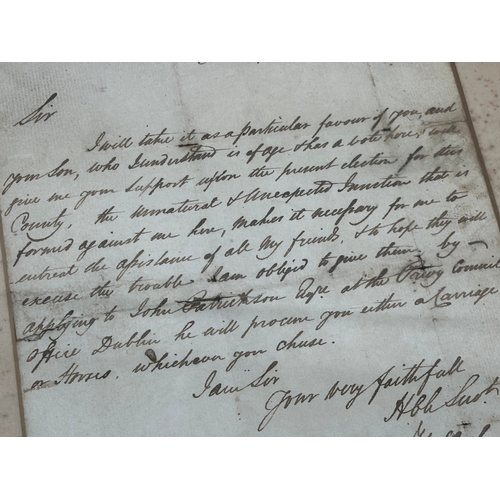 Sir
I will take it as a particular favour of you, and
your Son, who I understand is of age & has a vote here, will
give me your support upon the present election for this
County, the unnatural & Unexpected Junction that is
formed against me here, makes it necessary for me to
entreat the assistance of all My friends, & to hope they will
excuse the trouble I am obliged to give them, by
applying to John Patrickson Esqr. at the Privy Council
office Dublin he will procure you either a Carriage
or Horses. whichever you chuse.
I am Sir
Your very faithfull